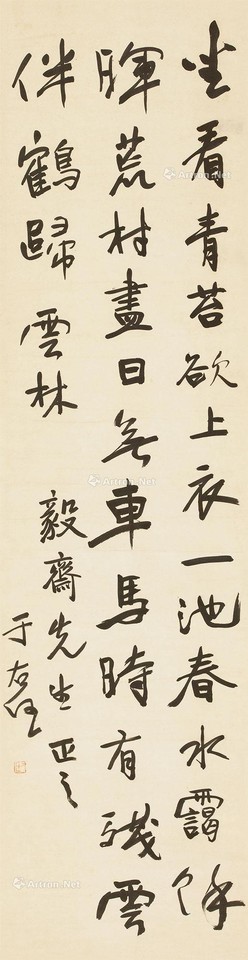 坐看青苔欲上衣一池春水靄餘
暉荒村盡日無車馬時有殘雲
伴鶴歸 雲林
毅齋先生正之
于右任
Artron.Net
Artron.Net
Artron.Net
Artron.Net